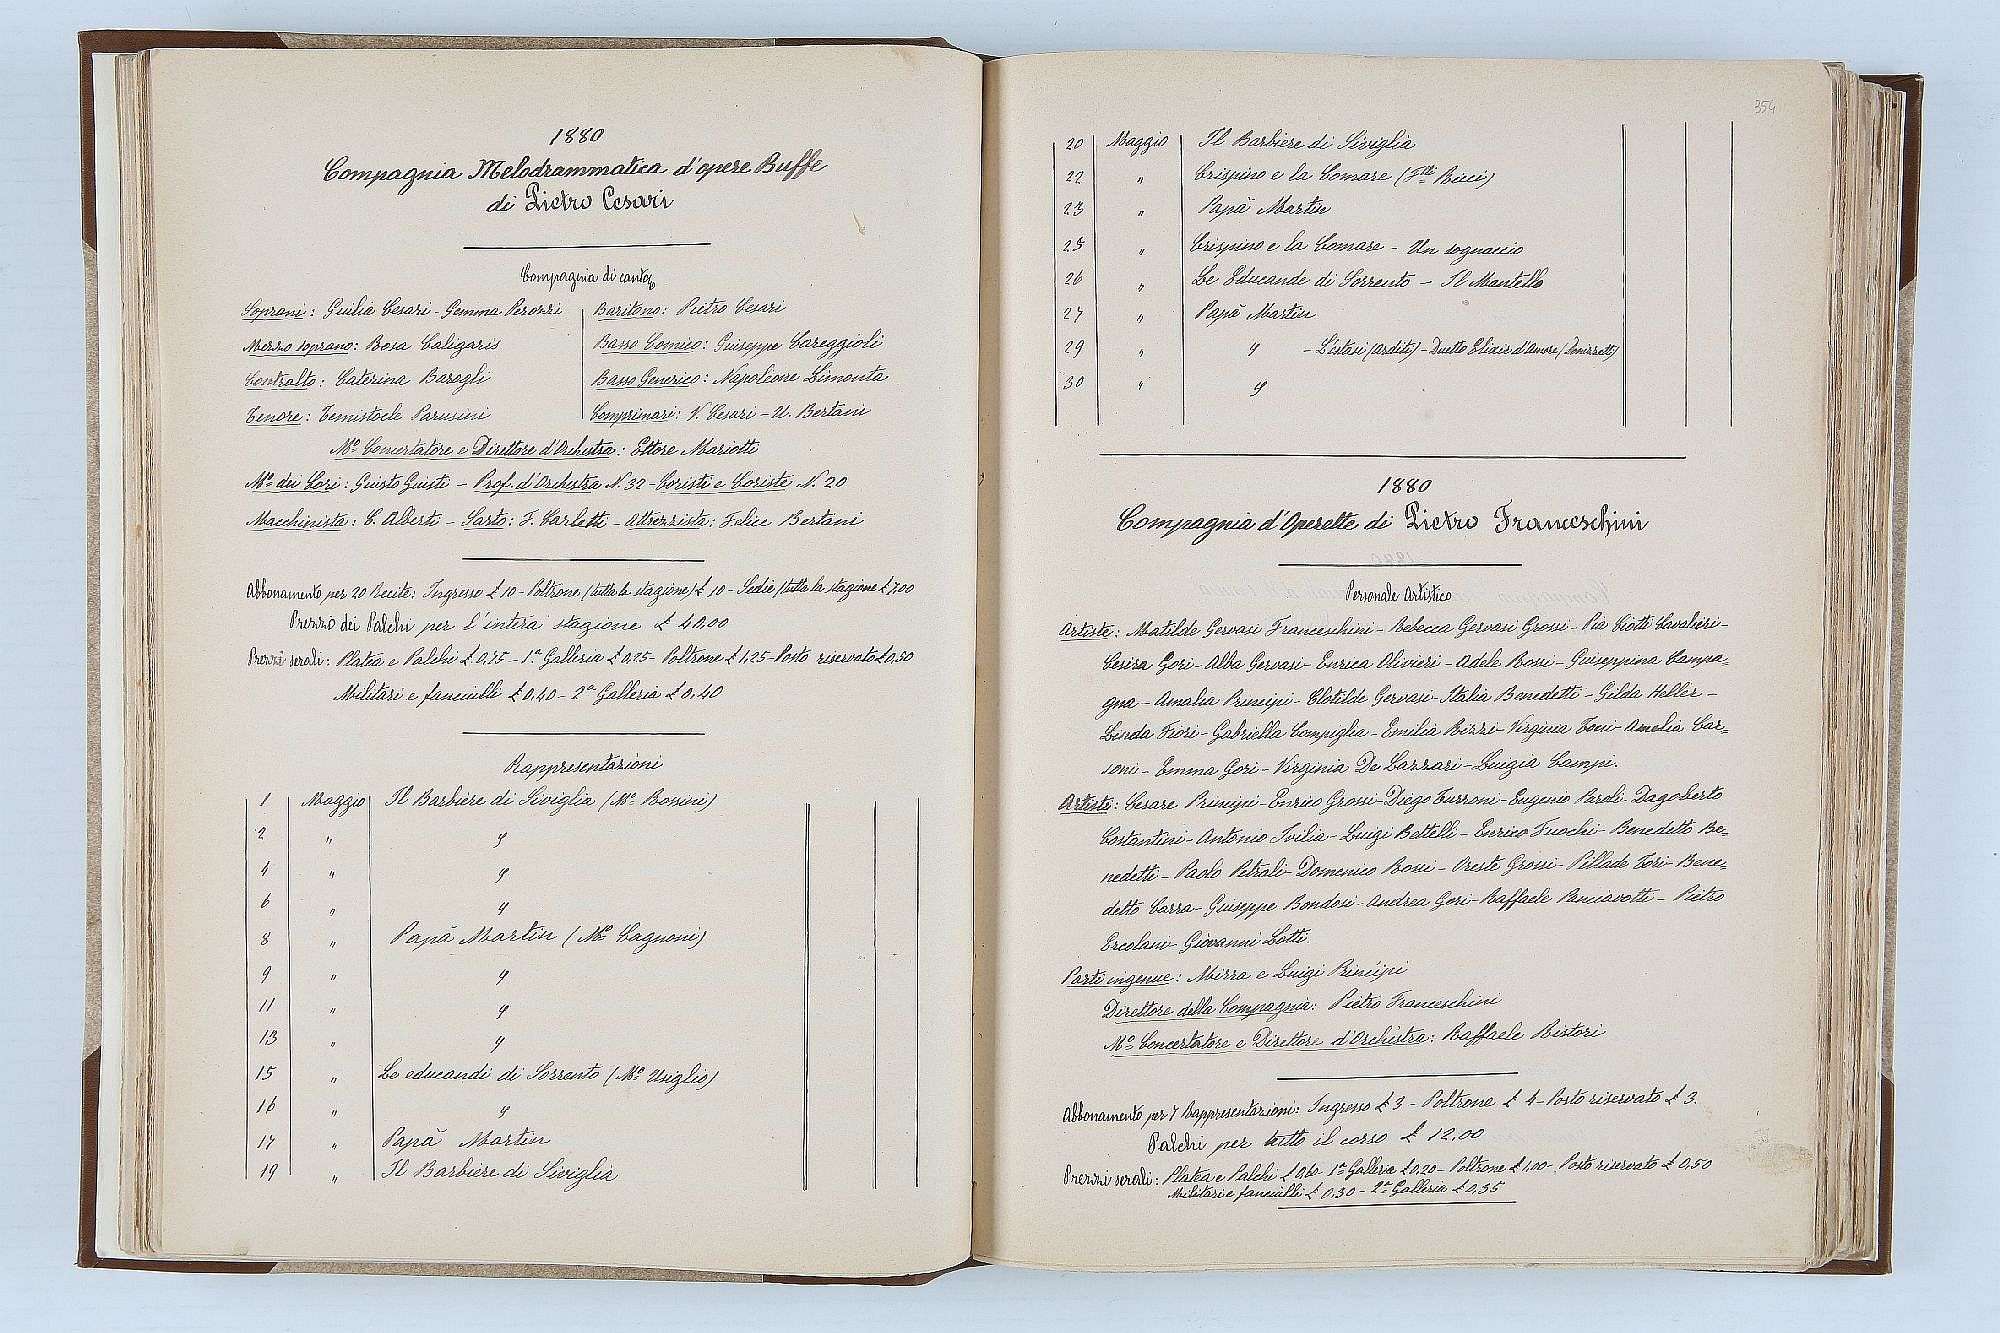 1880
Compagnia Melodrammatica d'opere Buffe
di Pietro Cesari
Compagnia di canto
Soprani: Giulia Cesari - Gemma Perozzi
Mezzo soprano: Rosa Caligaris
Contralto: Caterina Baregli
Tenore: Temistocle Parusini
Baritono: Pietro Cesari
Basso Comico: Giuseppe Careggioli
Basso Generico: Napoleone Limonta
Comprimari: V. Cesari - U. Bertani
Mo. Concertatore e Direttore d'Orchestra: Ettore Mariotti
Mo. dei Cori: Giusto Giusti - Prof. d'Orchestra N. 32 - Coristi e Coriste N. 20
Macchinista: C. Alberti - Sarto: F. Carletti - Attrezzista: Felice Bertani
Abbonamento per 20 Recite: Ingresso £ 10 - Poltrone (tutta la stagione) £ 10 - Sedie (tutta la stagione £ 7,00
Prezzo dei Palchi per l'intera stagione £ 40.00
Prezzi serali: Platea e Palchi £ 0,75 - 1a Galleria £ 0,25 - Poltrone £ 1,25 - Posto riservato £ 0,50
Militari e fanciulli £ 0,40 - 2a Galleria £ 0,40
Rappresentazioni
1 Maggio Il Barbiere di Siviglia (Mo. Rossini)
2 " "
4 " "
6 " "
8 " Papà Martin (Mo. Cagnoni)
9 " "
11 " "
13 " "
15 " Le educandi di Sorrento (Mo. Usiglio)
16 " "
17 " Papà Martin
19 " Il Barbiere di Siviglia
354
20 Maggio Il Barbiere di Siviglia
22 " Crispino e la Comare (Flli Ricci)
23 " Papà Martin
25 " Crispino e la Comare - Un sognaccio
26 " Le Educande di Sorrento - Il Mantello
27 " Papà Martin
29 " " - L'estasi (Arditi) - Duetto Elisir d'Amore (Donizzetti)
30 " "
1880
Compagnia d'Operette di Pietro Franceschini
Personale Artistico
Artiste: Matilde Gervasi Franceschini - Rebecca Gervasi Grossi - Pia Ciotti Cavalieri -
Cesira Gori - Alba Gervasi - Enrica Olivieri - Adele Rossi - Giuseppina Campa=
gna - Amalia Principi - Clotilde Gervasi - Italia Benedetti - Gilda Heller -
Linda Fiori - Gabriella Compiglia - Emilia Bizzi - Virginia Toni - Amelia Car=
soni - Emma Gori - Virginia De Lazzari - Luigia Campi.
Artisti: Cesare Principi - Enrico Grossi - Diego Turroni - Eugenio Paroli - Dagoberto
Costantini - Antonio Ivilia - Luigi Battelli - Enrico Fuochi - Benedetto Be=
nedetti - Paolo Petrali - Domenico Rossi - Oreste Grossi - Pillade Fori - Bene=
detto Carra - Giuseppe Bondosi - Andrea Gori - Raffaele Panciavotti - Pietro
Ercolani - Giovanni Lotti
Parti ingenue: Mirra e Luigi Principi
Direttore della Compagnia: Pietro Franceschini
Mo. Concertatore e Direttore d'Orchestra: Raffaele Ristori
Abbonamento per 7 Rappresentazioni: Ingresso £ 3 - Poltrone £ 4 - Posto riservato £ 3.
Palchi per tutto il corso £ 12.00
Prezzi serali: Platea e Palchi £ 0,60 - 1a Galleria £ 0,20 - Poltrone £ 1,00 - Posto riservato £ 0,50
Militari e fanciulli £ 0,30 - 2a Galleria £ 0,35